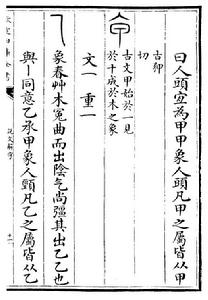 曰人頭宜為甲甲象人頭凡甲之屬皆从甲
古狎
切
古文甲始於一見
於十成於木之象
文一 重一
象春艸木冤曲而出陰气尚彊其出乙乙也
與丨同意乙承甲象人頸凡乙之屬皆从乙
說文解字